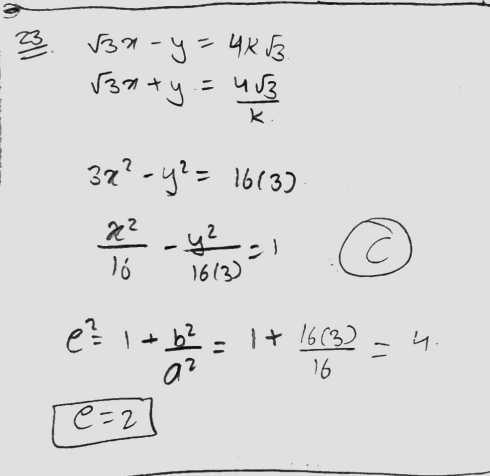 23. √3x - y = 4k√3
√3x + y = 4√3/k.
3x² - y² = 16(3)
x²/16 - y²/16(3) = 1
C
e² = 1 + b²/a² = 1 + 16(3)/16 = 4.
e = 2